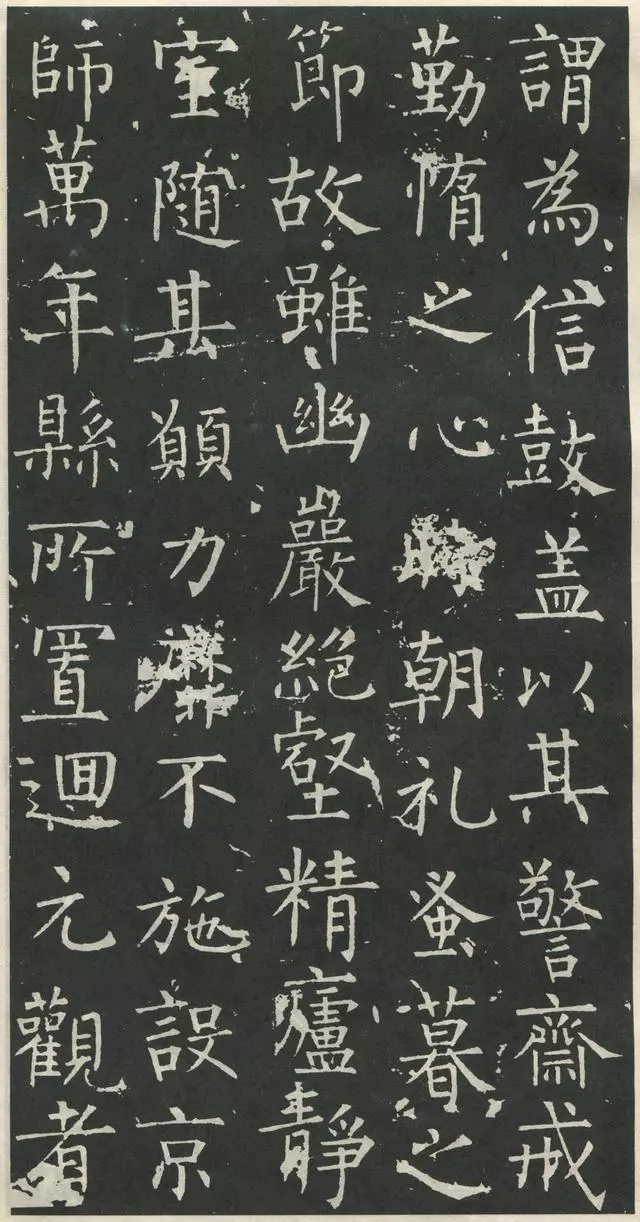 謂為信鼓盖以其警齋戒
勤惰之心時朝礼蚤暮之
節故雖幽巖絶壑精廬静
室随其願力靡不施設京
師萬年縣所置迴元觀者